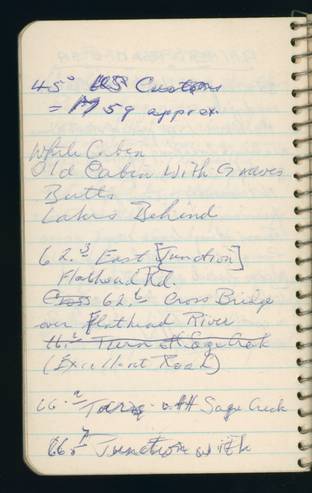 45° US Customs
= M 59 approx.
White Cabin
Old Cabin With Graves
Butts
Lakes Behind
62.³ East [Junction]
Flathead Rd.
62.⁶ Cross Bridge
over Flathead River
Turn Sage Crk
(Excellent Road)
66.² Turn off Sage Creek
66.⁷ Junction with